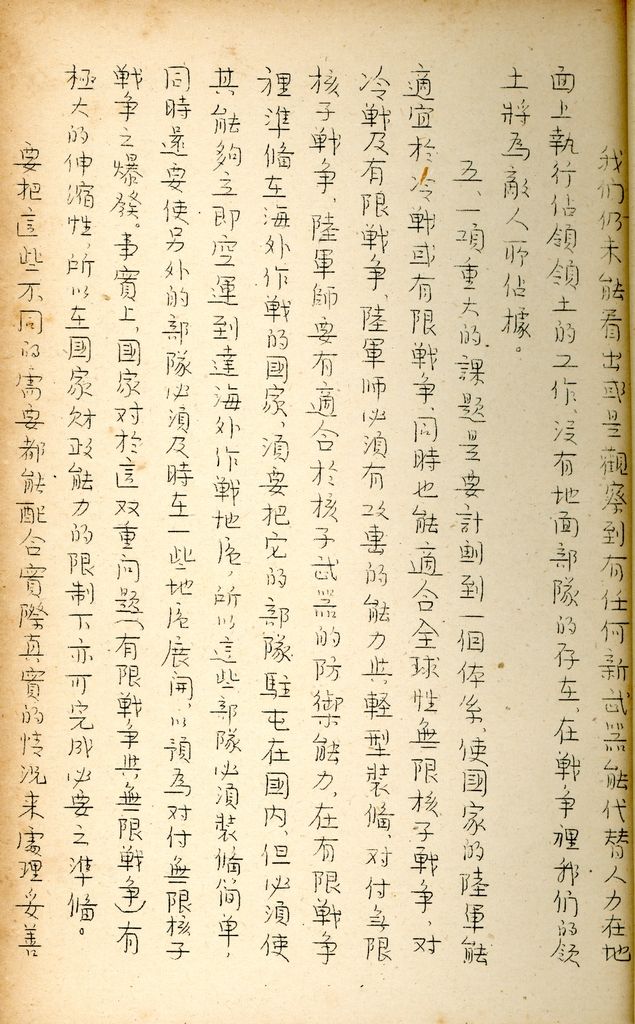 我们仍未能看出或是觀察到有任何新武器能代替人力在地
面上執行佔領領土的工作、没有地面部隊的存在、在戰爭裡我们的領
土將為敵人所佔據。
五、一項重大的課題是要計劃到一個体系、使國家的陸軍能
適宜於冷戰或有限戰爭、同時也能適合全球性無限核子戰争、对
冷戰及有限戰爭、陸軍师必須有攻擊的能力與軽型裝備、对付無限
核子戰争、陸軍師要有適合於核子武器的防禦能力、在有限戰争
裡準備在海外作戰的國家、須要把它的部隊駐屯在國内、但必須使
其能夠立即空運到達海外作戰地區，所以這些部隊必須裝備简单，
同時還要使另外的部隊必須及時在一些地區展開、以預為对付無限核子
戰争之爆發。事實上、國家对於這双重问題(有限戰争與無限戰争)有
極大的伸缩性，所以在國家财政能力的限制下亦可完成必要之準備。
要把這些不同的需要都能配合實際真實的情况来處理妥善